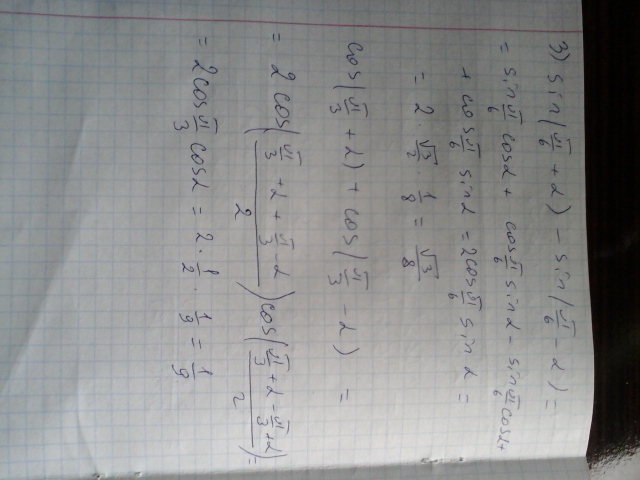 3) sin(π/6 + α) - sin(π/6 - α) =
= sin π/6 cosα + cos π/6 sinα - sin π/6 cosα +
+ cos π/6 sinα = 2cos π/6 sinα =
= 2 · √3/2 · 1/8 = √3/8
cos(π/3 + α) + cos(π/3 - α) =
= 2cos((π/3 + α + π/3 - α)/2) cos((π/3 + α - π/3 + α)/2) =
= 2cos π/3 cosα = 2 · 1/2 · 1/9 = 1/9